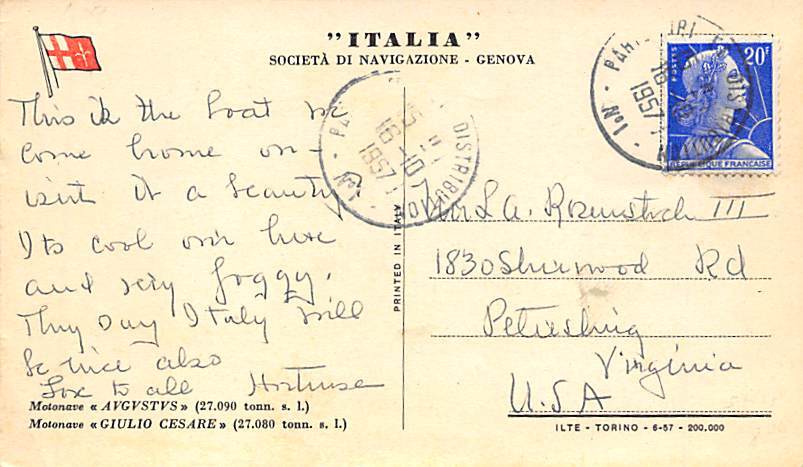 "ITALIA"
SOCIETÀ DI NAVIGAZIONE - GENOVA
This is the boat we
come home on -
isn't it a beauty?
Its cool over here
and very foggy.
They say Italy will
be nice also
Love to all Hortense
Motonave « AVGVSTVS » (27.090 tonn. s. l.)
Motonave « GIULIO CESARE » (27.080 tonn. s. l.)
PRINTED IN ITALY
POSTES
20F
REPUBLIQUE FRANÇAISE
PARIS TRI
DISTRIBUTION
16-10
1957
16-10
1957
DISTRIBUTION
L. A. Rosenstock III
1830 Sherwood Rd
Petersburg
Virginia
U.S.A
ILTE - TORINO - 6-57 - 200.000